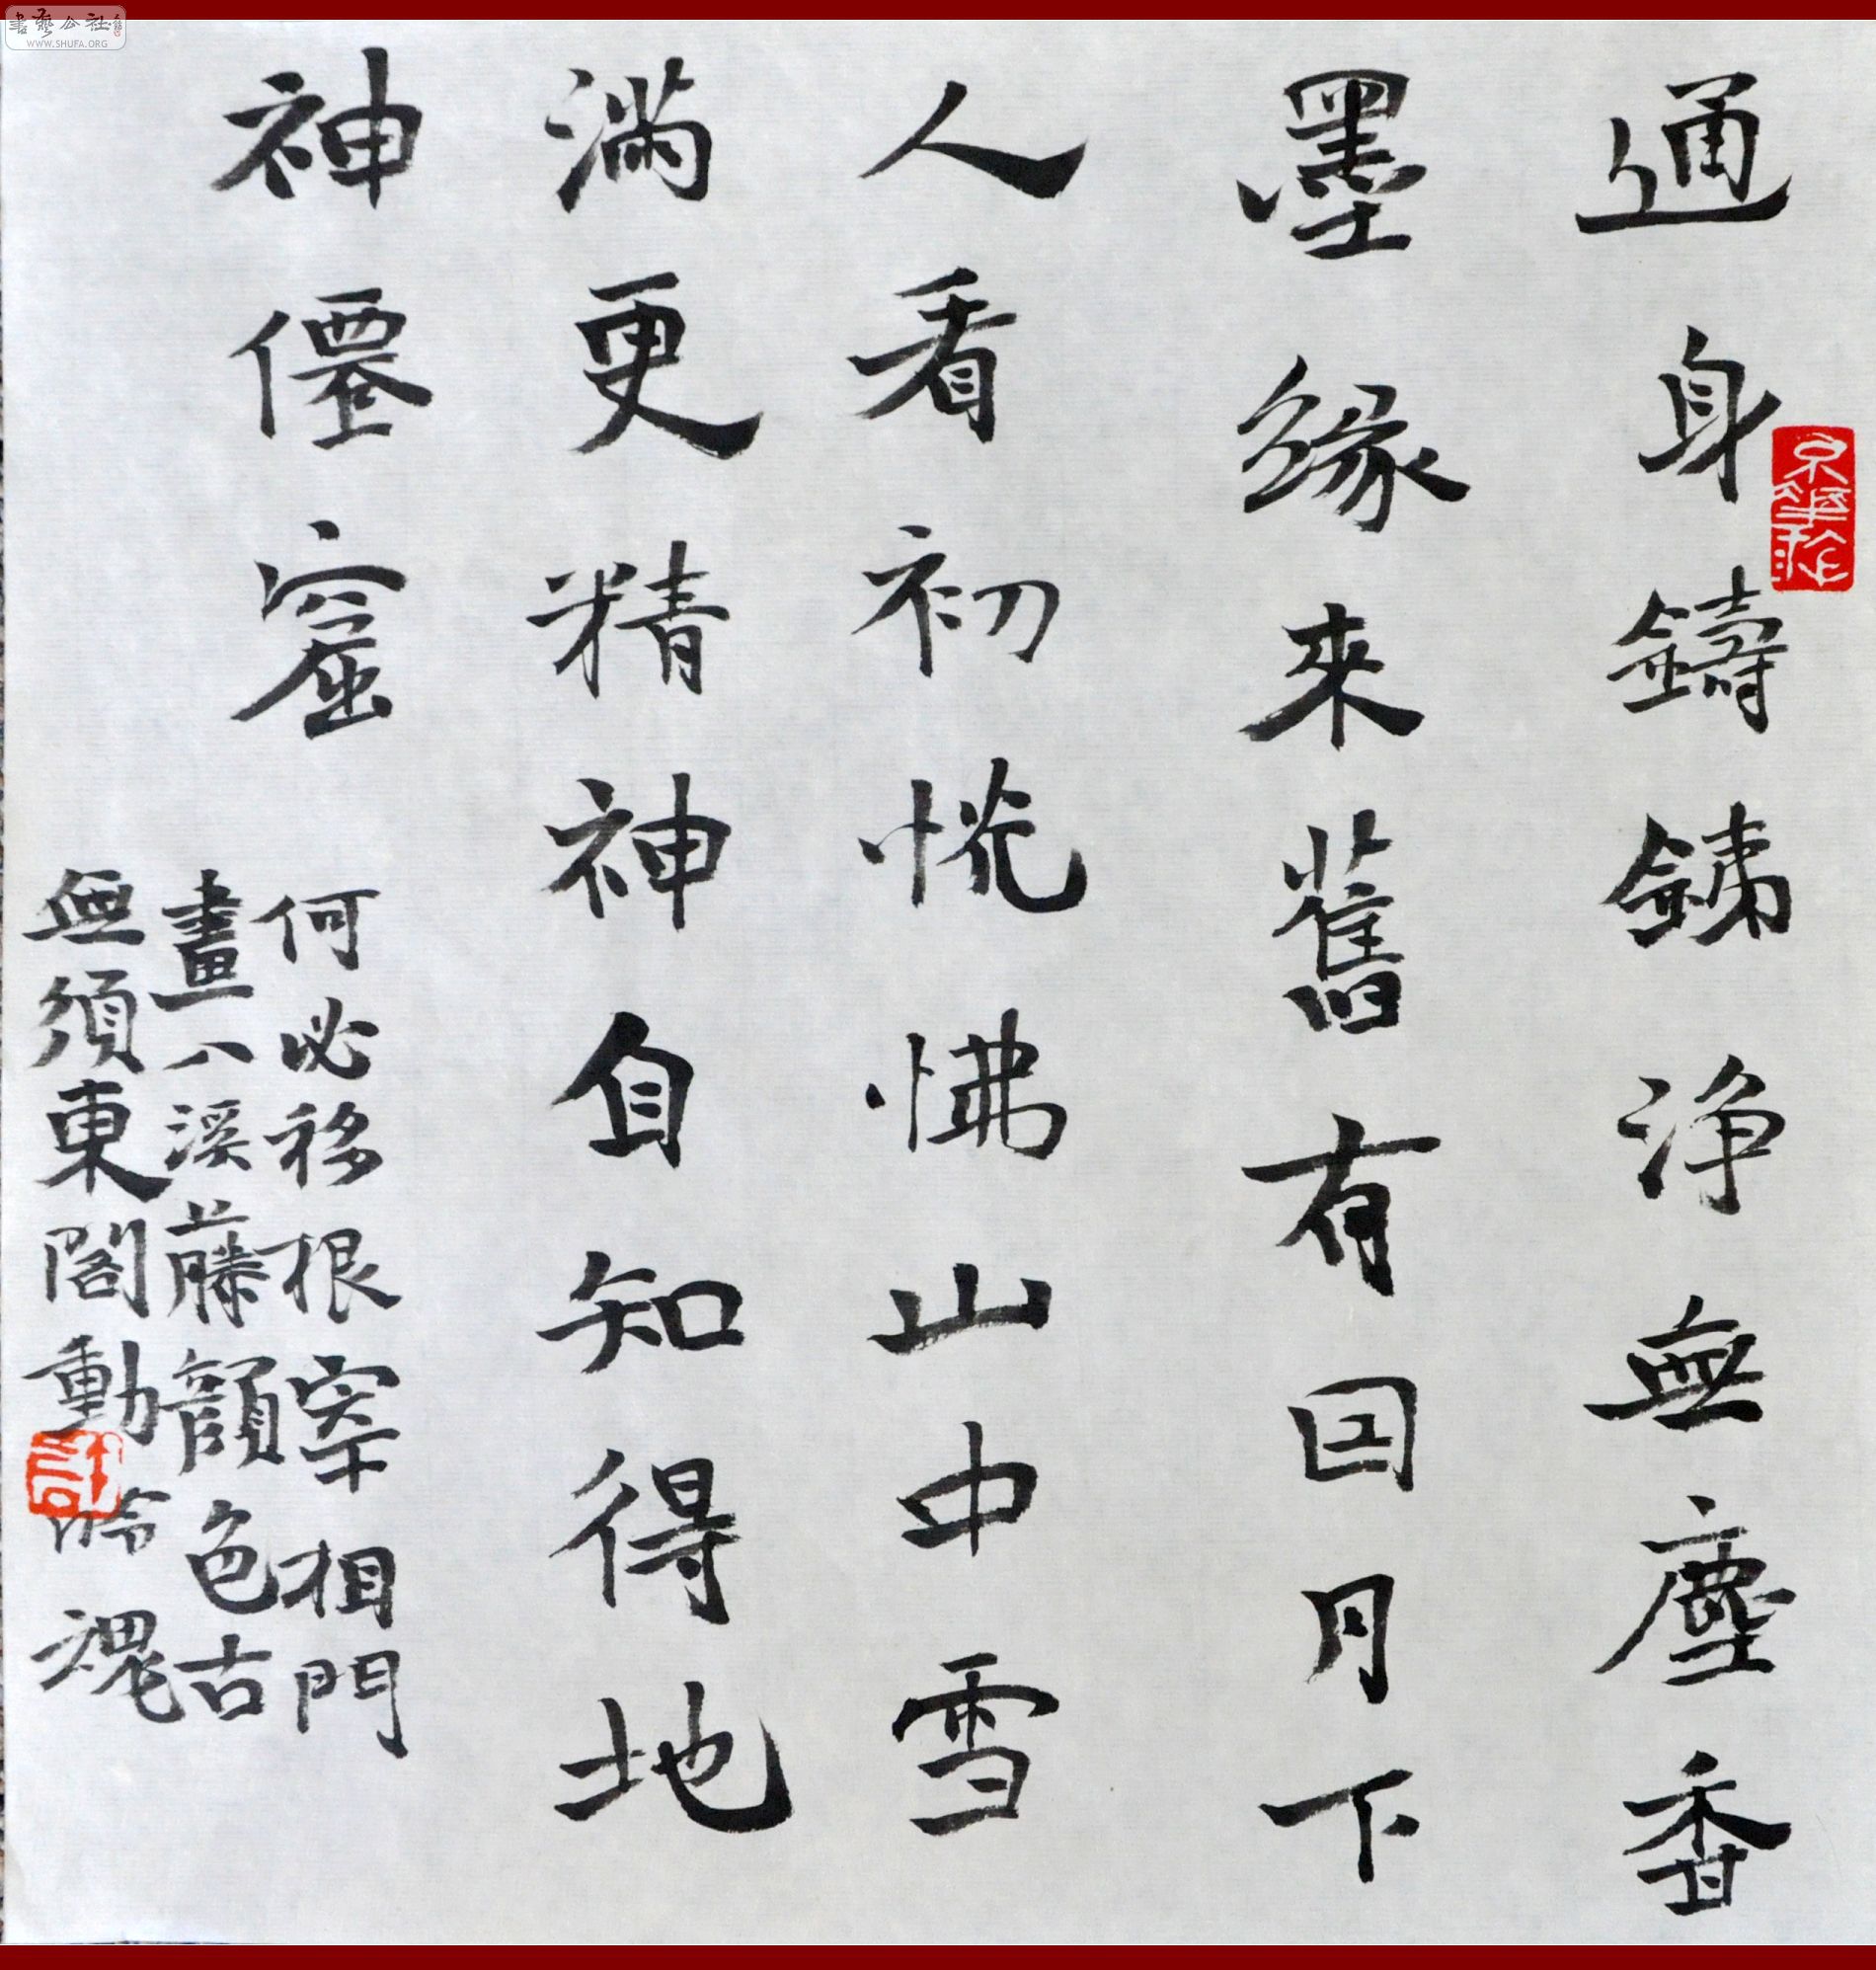 通身鑄鏽浄無塵香
墨緣來舊有因月下
人看初恍怫山中雪
滿更精神自知得地
神僊窟
何必移根宰相門
畫入溪藤顏色古
無須東閣動吟魂
書藝公社
WWW.SHUFA.ORG